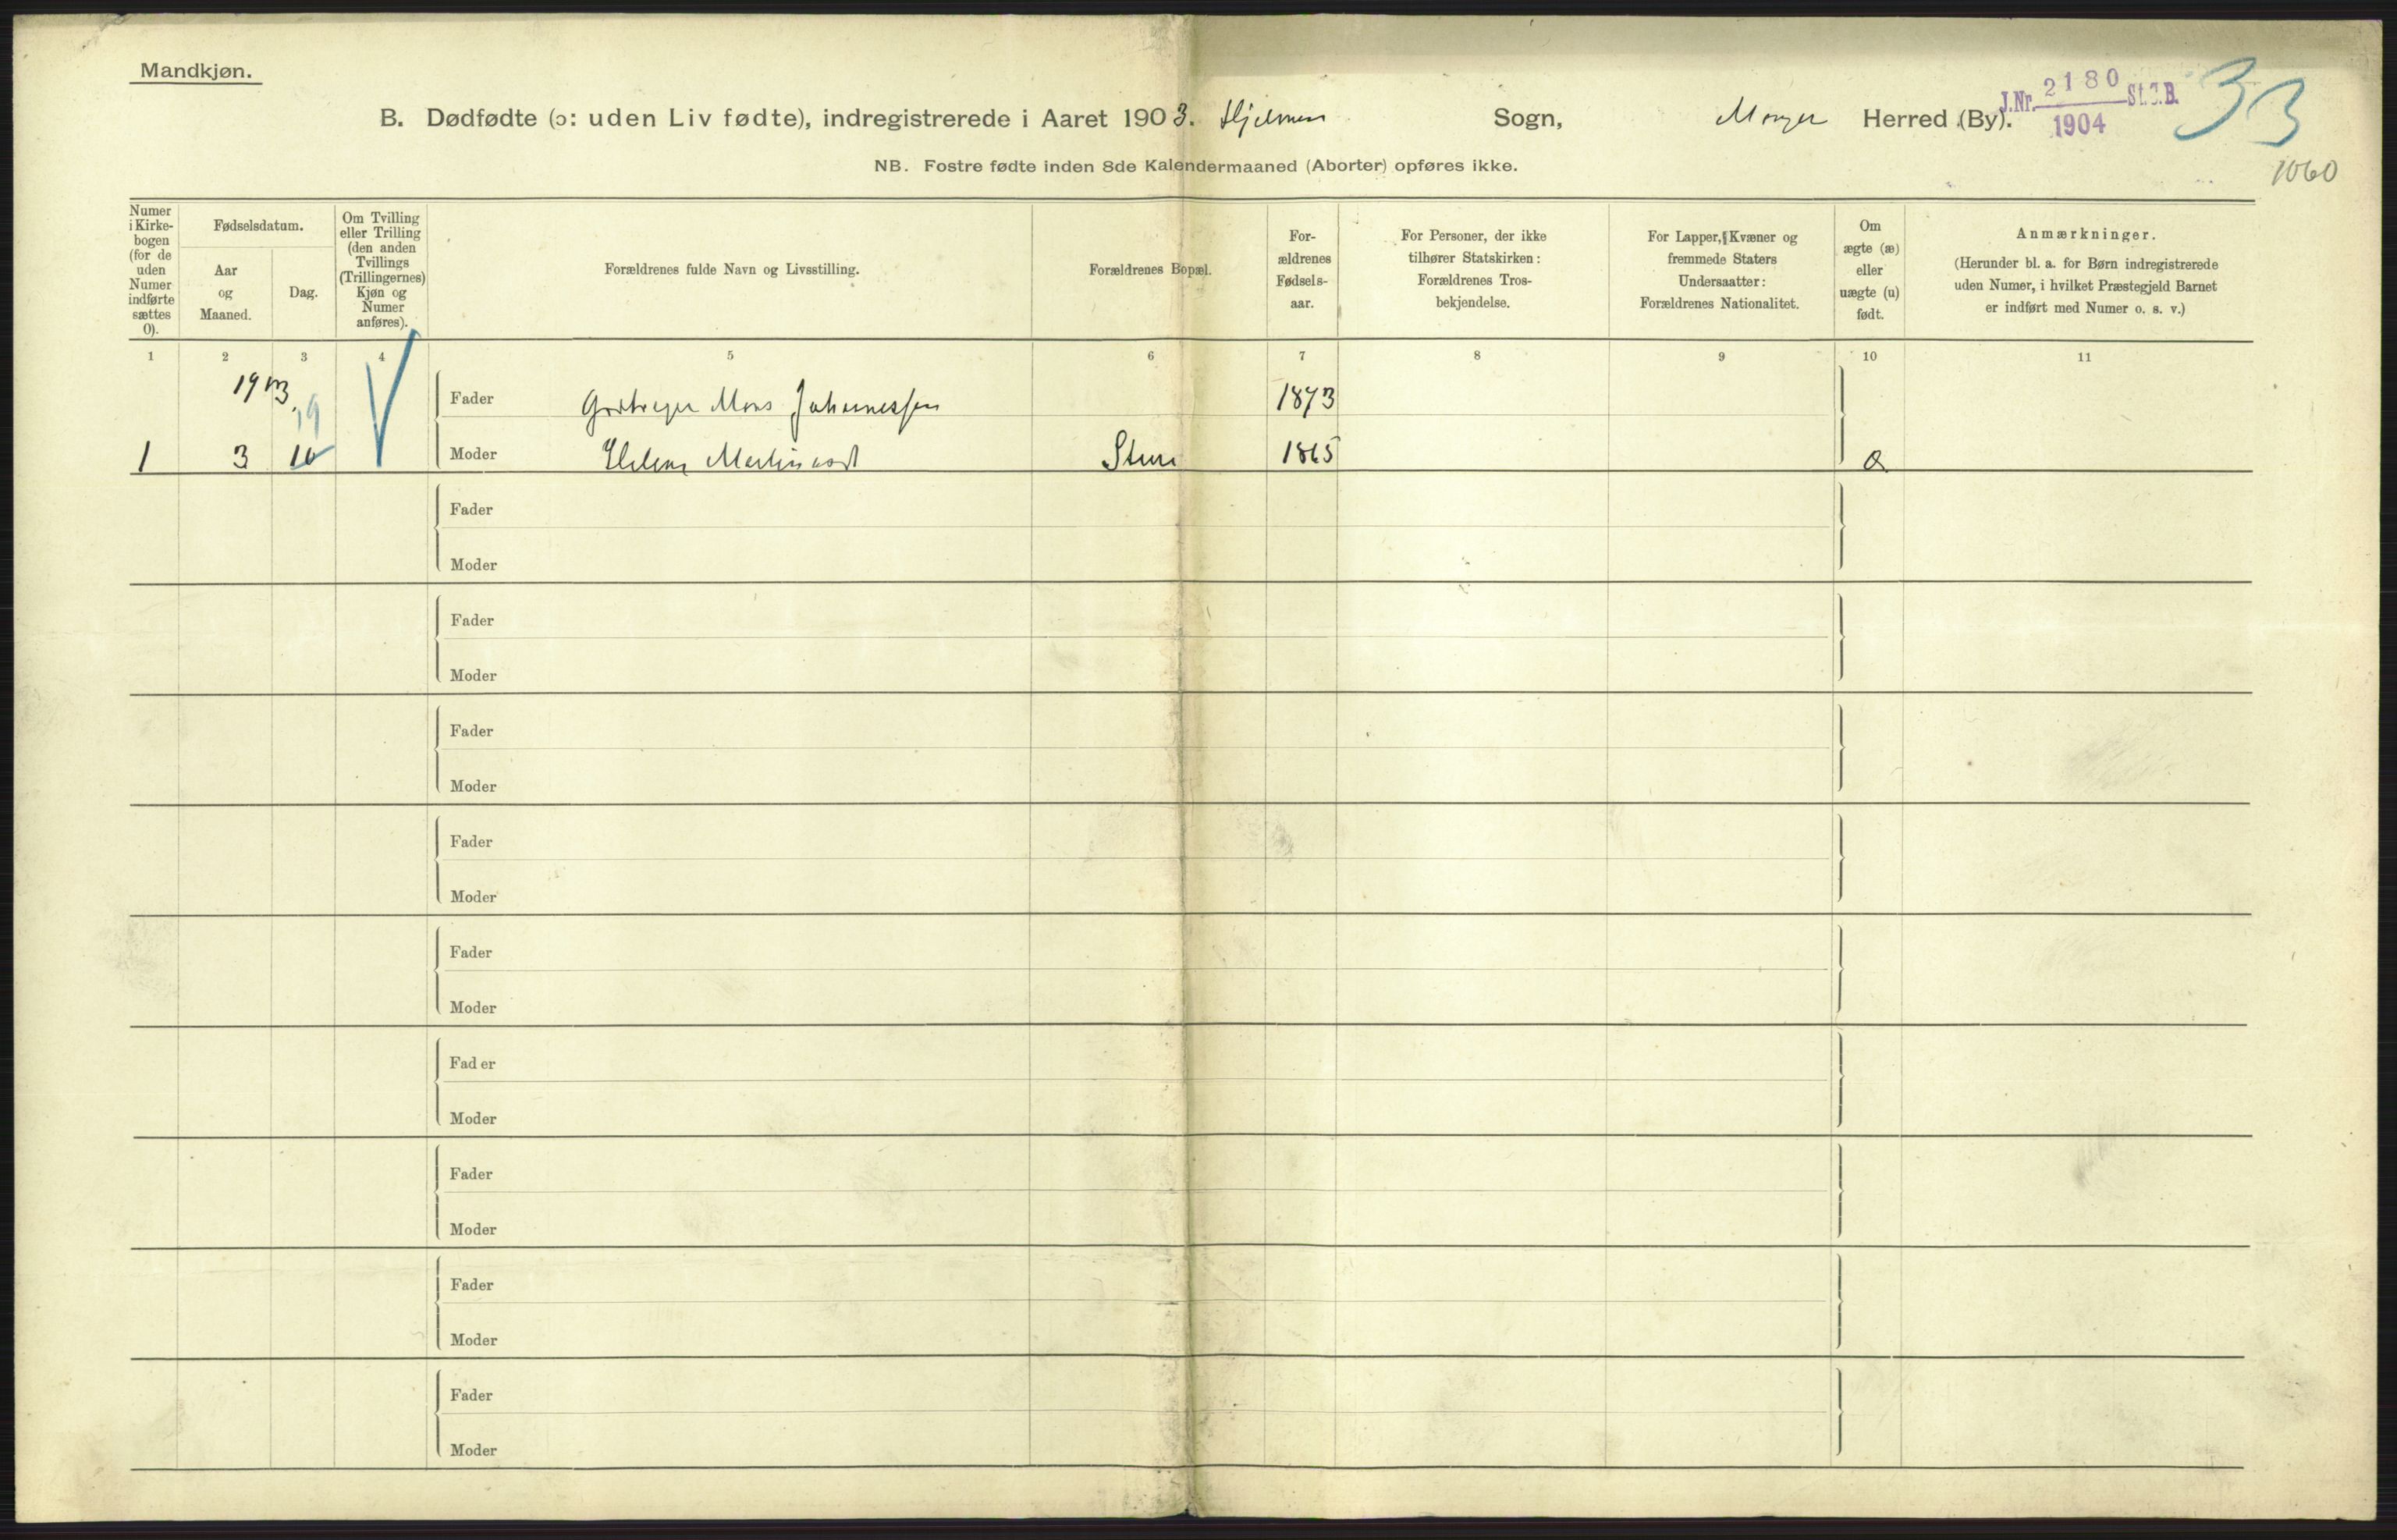 Mandkjøn.
B. Dødfødte (ɔ: uden Liv fødte), indregistrerede i Aaret 1903. Hjelmen Sogn, Manger Herred (By).
J.Nr. 2180 St.C.B.
1904
33
NB. Fostre fødte inden 8de Kalendermaaned (Aborter) opføres ikke.
1060
Numer
i Kirke-
bogen
(for de
uden
Numer
indførte
sættes
0).
Fødselsdatum.
Aar
og
Maaned.
Dag.
Om Tvilling
eller Trilling
(den anden
Tvillings
(Trillingernes)
Kjøn og
Numer
anføres).
Forældrenes fulde Navn og Livsstilling.
Forældrenes Bopæl.
For-
ældrenes
Fødsels-
aar.
For Personer, der ikke
tilhører Statskirken:
Forældrenes Tros-
bekjendelse.
For Lapper, Kvæner og
fremmede Staters
Undersaatter:
Forældrenes Nationalitet.
Om
ægte (æ)
eller
uægte (u)
født.
Anmærkninger.
(Herunder bl. a. for Børn indregistrerede
uden Numer, i hvilket Præstegjeld Barnet
er indført med Numer o. s. v.)
1 2 3 4 5 6 7 8 9 10 11
1903
19
Fader Mons Johannessen 1873
1 3 10 Moder Martinsdt Sture 1865 æ
Fader
Moder
Fader
Moder
Fader
Moder
Fader
Moder
Fader
Moder
Fader
Moder
Fader
Moder
Fader
Moder
Fader
Moder